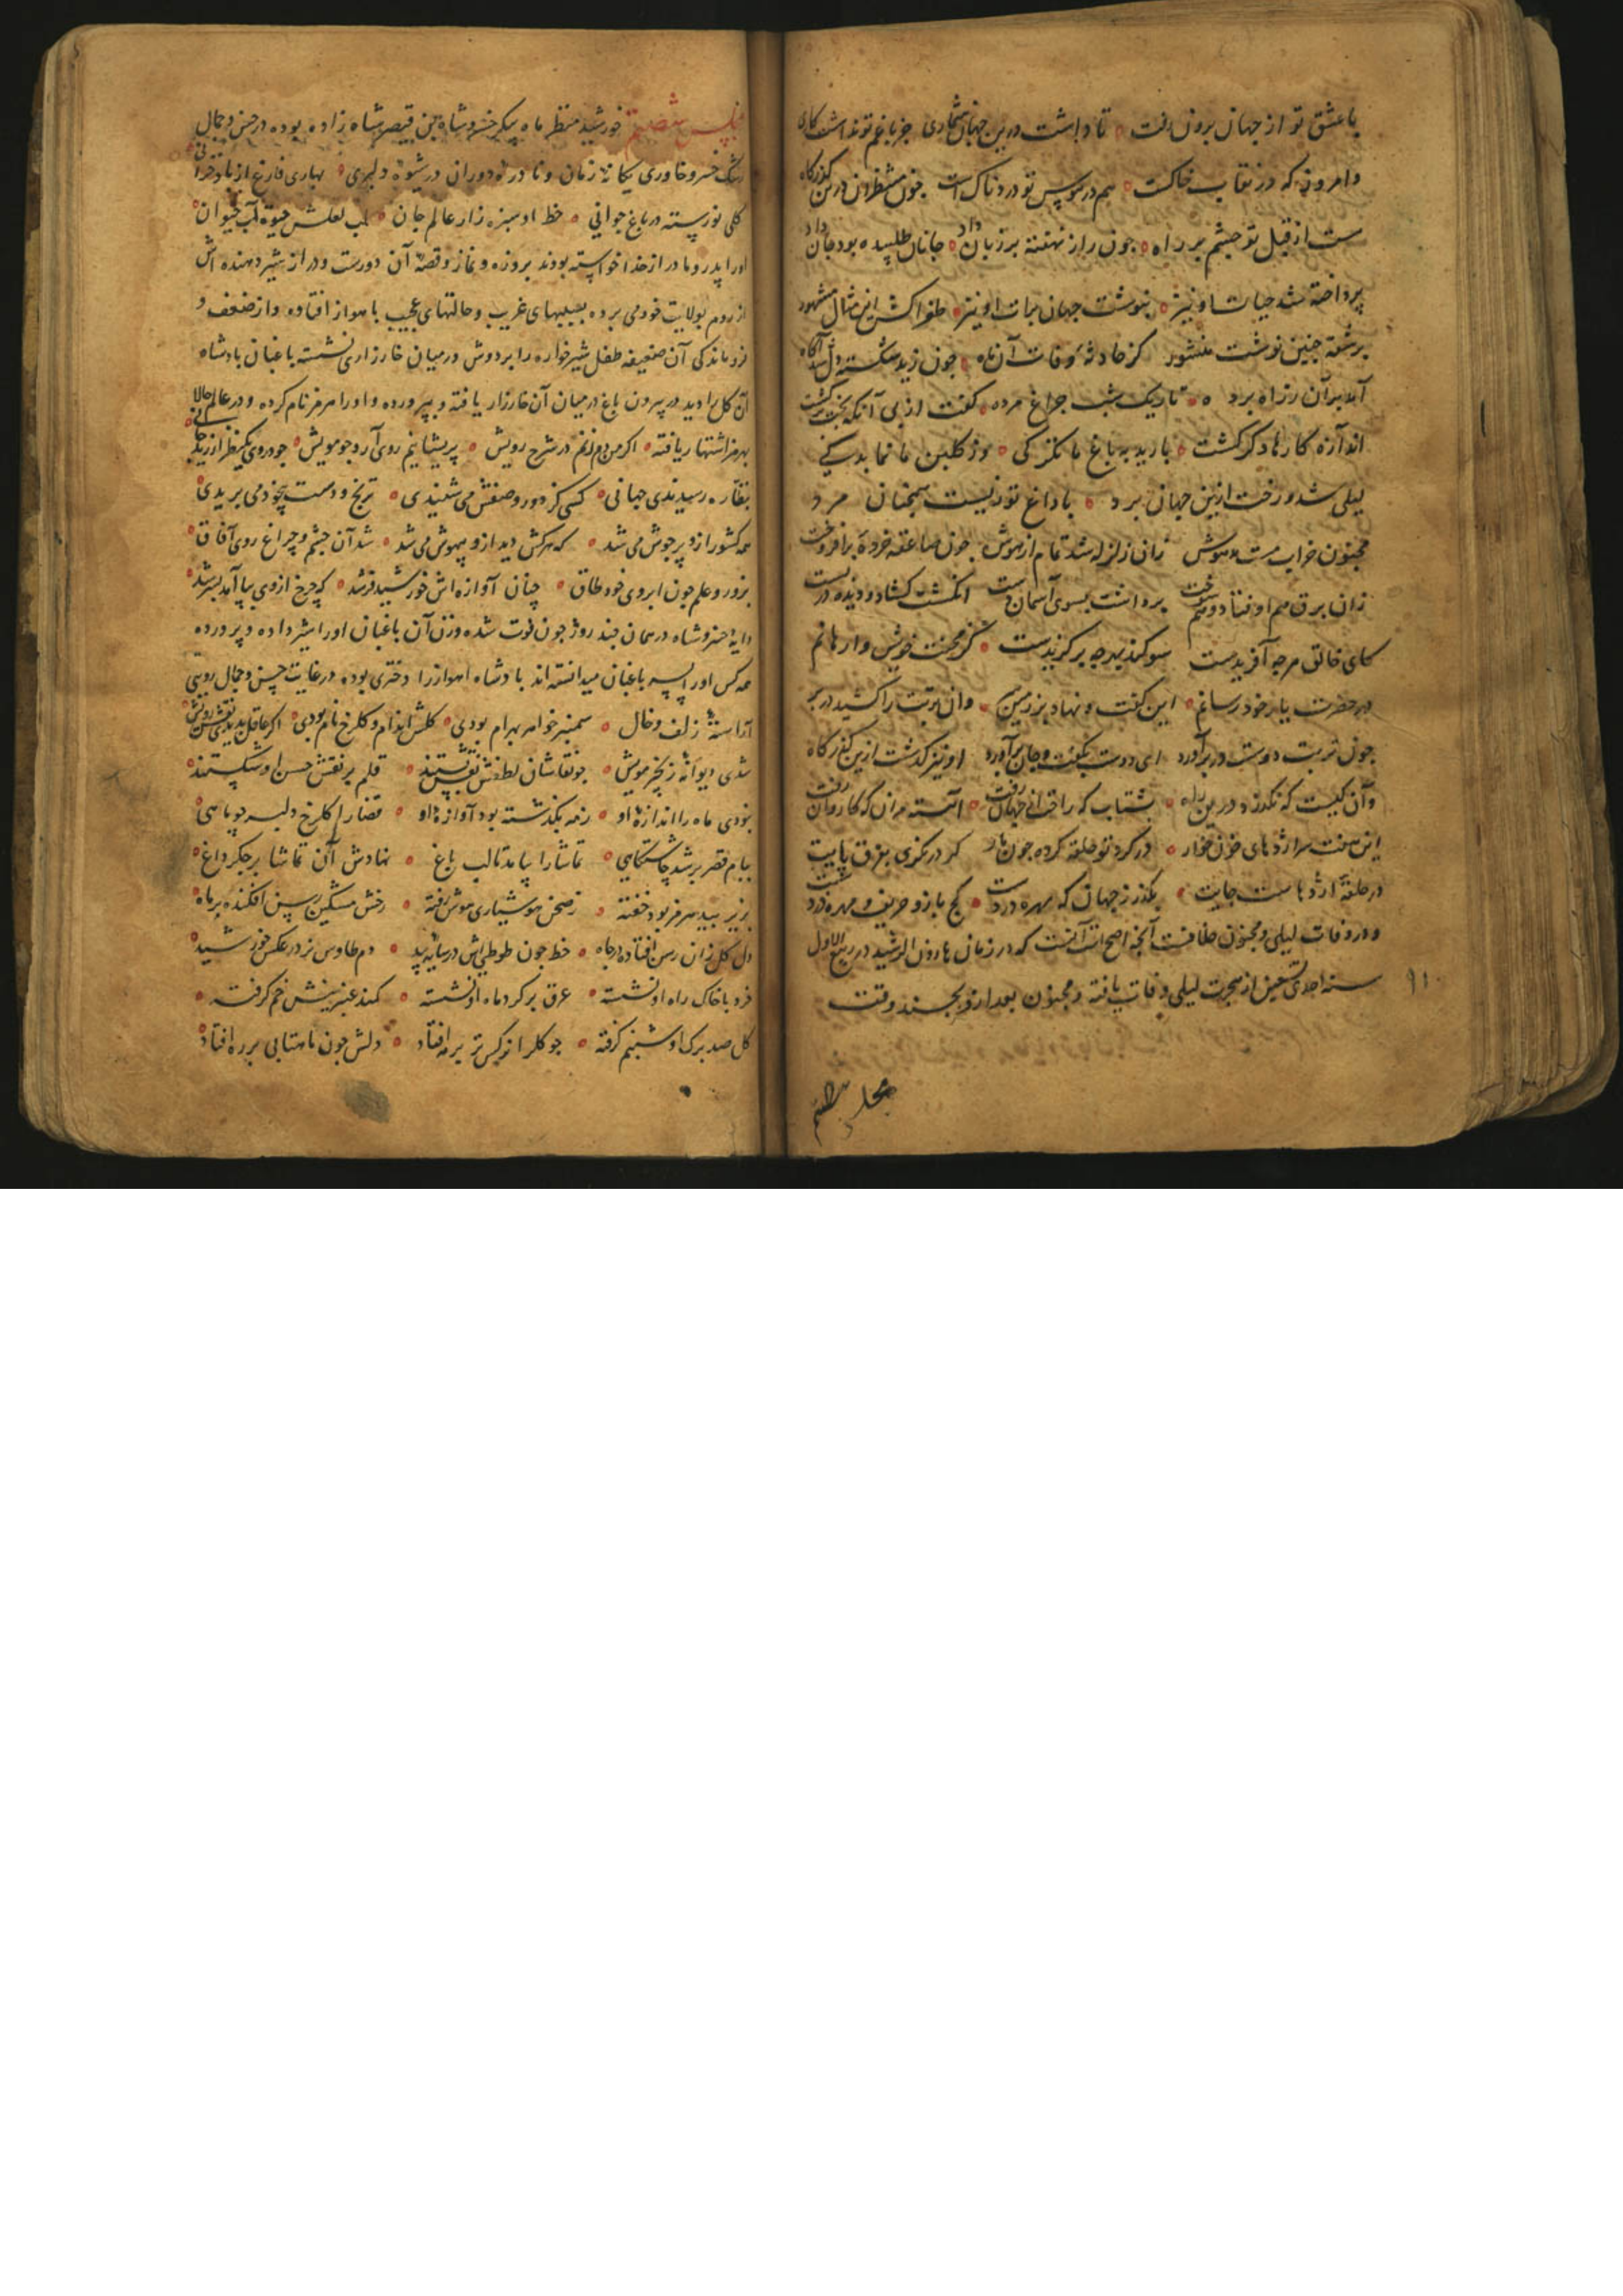 با عشق تو از جهان برون رفت ه تا داشت درین جهان شماری جز با غم تو نداشت کاری
وامروز که در نقاب خاکست ه هم در هوس تو دردناک است چون منتظران درین گذرگاه
هست از قبل تو چشم بر راه ه چون راز نهفته بر زبان داد ه جانان طلبیده بود جان داد
پرداخته شد حیات او نیز ه بنوشت جهان برات او نیز ه طغراکش این مثال مشهور
بر شقه چنین نوشت منشور کز حادثهٔ وفات آن ماه ه چون زید شکسته دل شد آگاه
آمد بر آن ه تاریک شب چراغ مرده ه گفت از پی آنکه بخت برگشت
اندازه کارها دگر گشت ه بارید به باغ ما تگرگی ه وز گلبن ما نماند برگی
لیلی شد و رخت ازین جهان برد ه با داغ تو زیست همچنان مرد
مجنون خراب مست مدهوش زان زلزله شد تمام از هوش چون صاعقه خورده برافروخت
زان برق هم اوفتاد و هم سوخت برداشت بسوی آسمان دست انگشت گشاد و دیده دربست
کای خالق هرچه آفریدست سوکند بهرچه برکزیدست ه کز محنت خویش وارهانم
در حضرت یار خود رسانم ه این گفت و نهاد بر زمین سر ه وان تربت را کشید در بر
چون تربت دوست در بر آورد ای دوست بگفت و جان برآورد او نیز گذشت ازین گذرگاه
وآن کیست که نگذرد درین راه ه بشتاب که راحت از جهان رفت ه آهسته مران که کاروان رفت
این هفت سر اژدهای خون خوار ه در کرد تو حلقه کرده چون مار گر درنگری بفرق پایت
در حلقهٔ اژدهاست جایت ه بگذر ز جهان که مهره دزدست ه کج باز و حریف و مهره دزد است
و در وفات لیلی و مجنون خلافست آنچه اصح است آنست که در زمان هارون الرشید در ربیع الاول
سنه احدی تسعین از هجرت لیلی وفات یافته و مجنون بعد ازو بچند وقت
۹۱
مجلس شصتم
مجلس شصتم خورشید منظر ماه پیکر خسرو شاه بن قیصر شاه زاده بوده در حسن و جمال
رشک خسرو خاوری یکانهٔ زمان و نادرهٔ دوران در شیوهٔ دلبری ه بهاری فارغ از باد خزانی
کلی نورسته در باغ جوانی ه خط او سبزه زار عالم جان ه لب لعلش حیوة آب حیوان ه
اورا پدر و مادر از خدا خواسته بودند بروزه و نماز و قصهٔ آن دورست و دراز شیر دهنده اش
از روم بولایت خود می برده بسببهای غریب و حالتهای عجیب باهواز افتاده و از ضعف و
فروماندکی آن ضعیفه طفل شیرخواره را بر دوش در میان خارزاری نشسته باغبان پادشاه
آن کل را دید در بیرون باغ در میان آن خارزار یافته و بپرورده و اورا هرمز نام کرده و در عالم حالا
بهرمز اشتهار یافته ه اکر من دم زنم در شرح رویش ه پریشانیم روی آرد چو مویش ه چو در وی یکنظر از
بنظاره رسیدندی جهانی ه کسی کز دور وصفش می شنیدی ه ترنج و دست بیخود می بریدی ه
همه کشور ازو پر جوش می شد ه که هرکش دید ازو بیهوش می شد ه شد آن چشم و چراغ روی آفاق ه
بزور و علم چون ابروی خود طاق ه چنان آوازه اش خورشید فر شد ه که چرخ از وی بپا آمد بسر شد ه
دایهٔ خسرو شاه در همان چند روز چون فوت شده و زن آن باغبان اورا شیر داده و پرورده
همه کس اورا پسر باغبان میدانسته اند پادشاه اهواز را دختری بوده در غایت حسن و جمال رویی
آراستهٔ زلف و خال ه سمنبر خواهر بهرام بودی ه کلش اندام و کلرخ نام بودی ه اکر عاقل بدیدی نقش رویش
شدی دیوانهٔ زنجیر مویش ه چو نقاشان لطفش نقش بستند ه قلم بر نقش حسن او شکستند ه
نبودی ماه را اندازهٔ او ه ز مه بگذشته بود آوازهٔ او ه قضا را کلرخ دلبر چو ماهی ه
ببام قصر بر شد چاشتکاهی ه تماشا را بیامد تا لب باغ ه نهادش آن تماشا بر جکر داغ ه
بزیر بید هرمز بود خفته ه ز صحن هوشیاری هوش رفته ه رخش مشکین رسن افکنده بر ماه ه
دل کل زان رسن افتاده در چاه ه خط چون طوطی اش در سایهٔ بید ه دم طاوس نر در عکس خورشید ه
فرو با خاک راه او نشسته ه عرق بر کرد ماه او نشسته ه کمند عنبرینش خم گرفته ه
کل صد برک او شبنم گرفته ه چو کلرا نرکس تر بر مه افتاد ه دلش چون ماهتابی بر ره افتاد ه